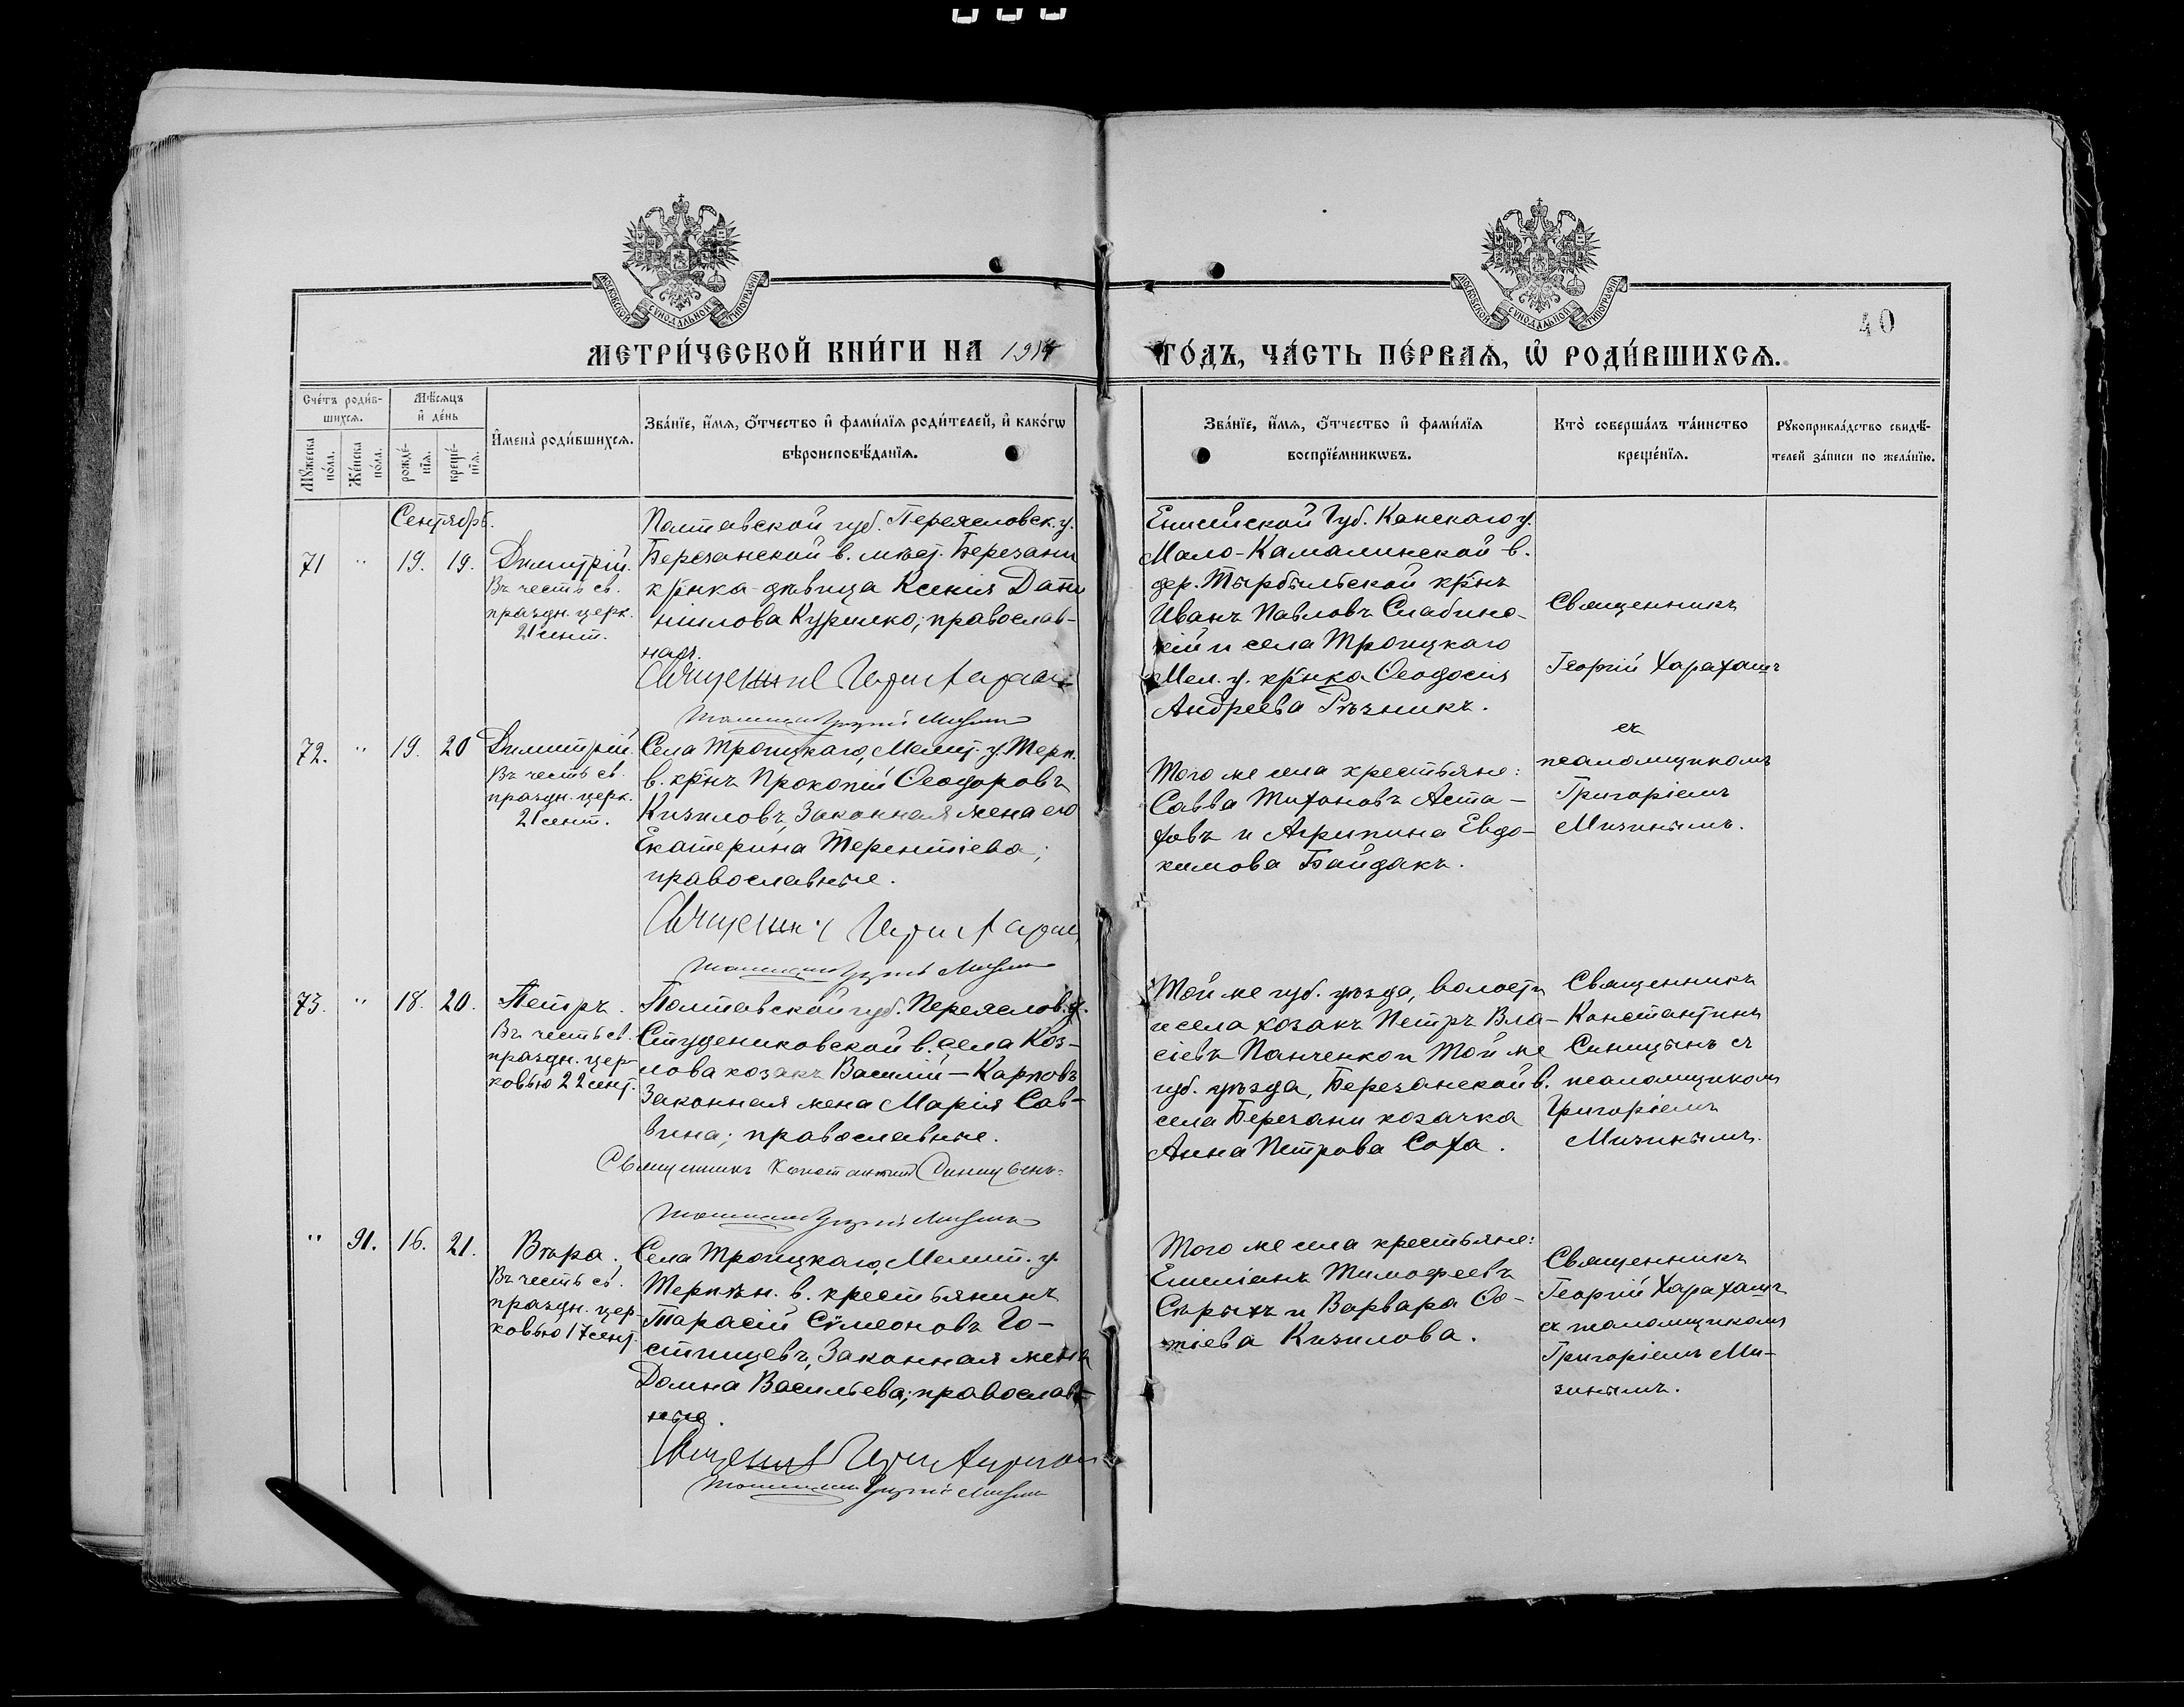 МОСКОВСКОЙ СѴНОДАЛЬНОЙ ТИПОГРАФІИ
МОСКОВСКОЙ СѴНОДАЛЬНОЙ ТИПОГРАФІИ
40
МЕТРИ́ЧЕСКОЙ КНИ́ГИ НА 1914 ГО́ДЪ, ЧА́СТЬ ПЕ́РВАѦ, Ѽ РОДИ́ВШИХСѦ.
Сче́тъ роди́в-
шихсѧ.
Мѣ́сѧцъ
и҆ де́нь
Мꙋ́жеска
по́ла.
Же́нска
по́ла.
рожде́-
нїѧ.
креще́-
нїѧ.
И҆мена̀ роди́вшихсѧ.
Зва́нїе, и҆́мѧ, ѻ҆́тчество и҆ фами́лїѧ роди́телей, и҆ како́гѡ
вѣроисповѣ́данїѧ.
Зва́нїе, и҆́мѧ, ѻ҆́тчество и҆ фами́лїѧ
воспрїе́мникѡвъ.
Кто̀ соверша́лъ та́инство
креще́нїѧ.
Рꙋкоприкла́дство свидѣ́-
телей за́писи по жела́нїю.
Сентябрь.
71 " 19. 19.
Димитрій.
Въ честь св.
праздн. церк.
21 сент.
Полтавской губ. Переясловск. у.
Березанской в. мѣст. Березани
кр-нка-дѣвица Ксенія Дані
ніилова Курилко; православ-
ная.
Священник Георгий Харахаш
Псаломщик Григорій Мизинъ
Енисейской Губ. Канскаго у.
Мало-Камалинской в.
дер. Тырбыльской кр-нъ
Иванъ Павловъ Слабинс-
кій и села Троицкаго
Мел. у. кр-нка Ѳеодосія
Андреева Рѣзникъ.
Священникъ
Георгій Харахашъ
съ
псаломщикомъ
Григоріемъ
Мизинымъ.
72. " 19. 20
Димитрій.
Въ честь св.
праздн. церк.
21 сент.
Села Троицкаго, Мелит. у. Терп.
в. кр-нъ Прокопій Ѳеодоровъ
Кизиловъ, Законная жена его
Екатерина Терентіева;
православные.
Священник Георгий Харахаш
Псаломщик Григорій Мизинъ
Того же села крестьяне:
Савва Тихоновъ Аста-
ховъ и Агрипина Евдо-
кимова Байдакъ.
73. " 18. 20.
Петръ.
Въ честь св.
праздн. цер-
ковью 22 сент.
Полтавской губ. Переяслов. у.
Студениковской в. села Коз-
лова козакъ Василій-Карповъ
Законная жена Марія Сав-
вина; православные.
Священникъ Константинъ Синицынъ.
Псаломщик Григорій Мизинъ
Той же губ. уѣзда, волости
и села козакъ Петръ Вла-
сіевъ Панченко и Той же
губ. уѣзда, Березанской в.
села Березани козачка
Анна Петрова Соха.
Священникъ
Константинъ
Синицынъ съ
псаломщикомъ
Григоріемъ
Мизинымъ.
" 91. 16. 21.
Вѣра.
Въ честь св.
праздн. цер-
ковью 17 сент.
Села Троицкаго, Мелит. у.
Терпѣн. в. крестьянинъ
Тарасій Сѵмеоновъ Го-
стищевъ, Законная жена
Домна Васильева; православ-
ные.
Священник Георгий Харахаш
Псаломщик Григорій Мизинъ
Того же села крестьяне:
Емиліанъ Тимоѳеевъ
Сѣрыхъ и Варвара Ѳо-
тіева Кизилова.
Священникъ
Георгій Харахашъ
съ псаломщикомъ
Григоріемъ Ми-
зинымъ.